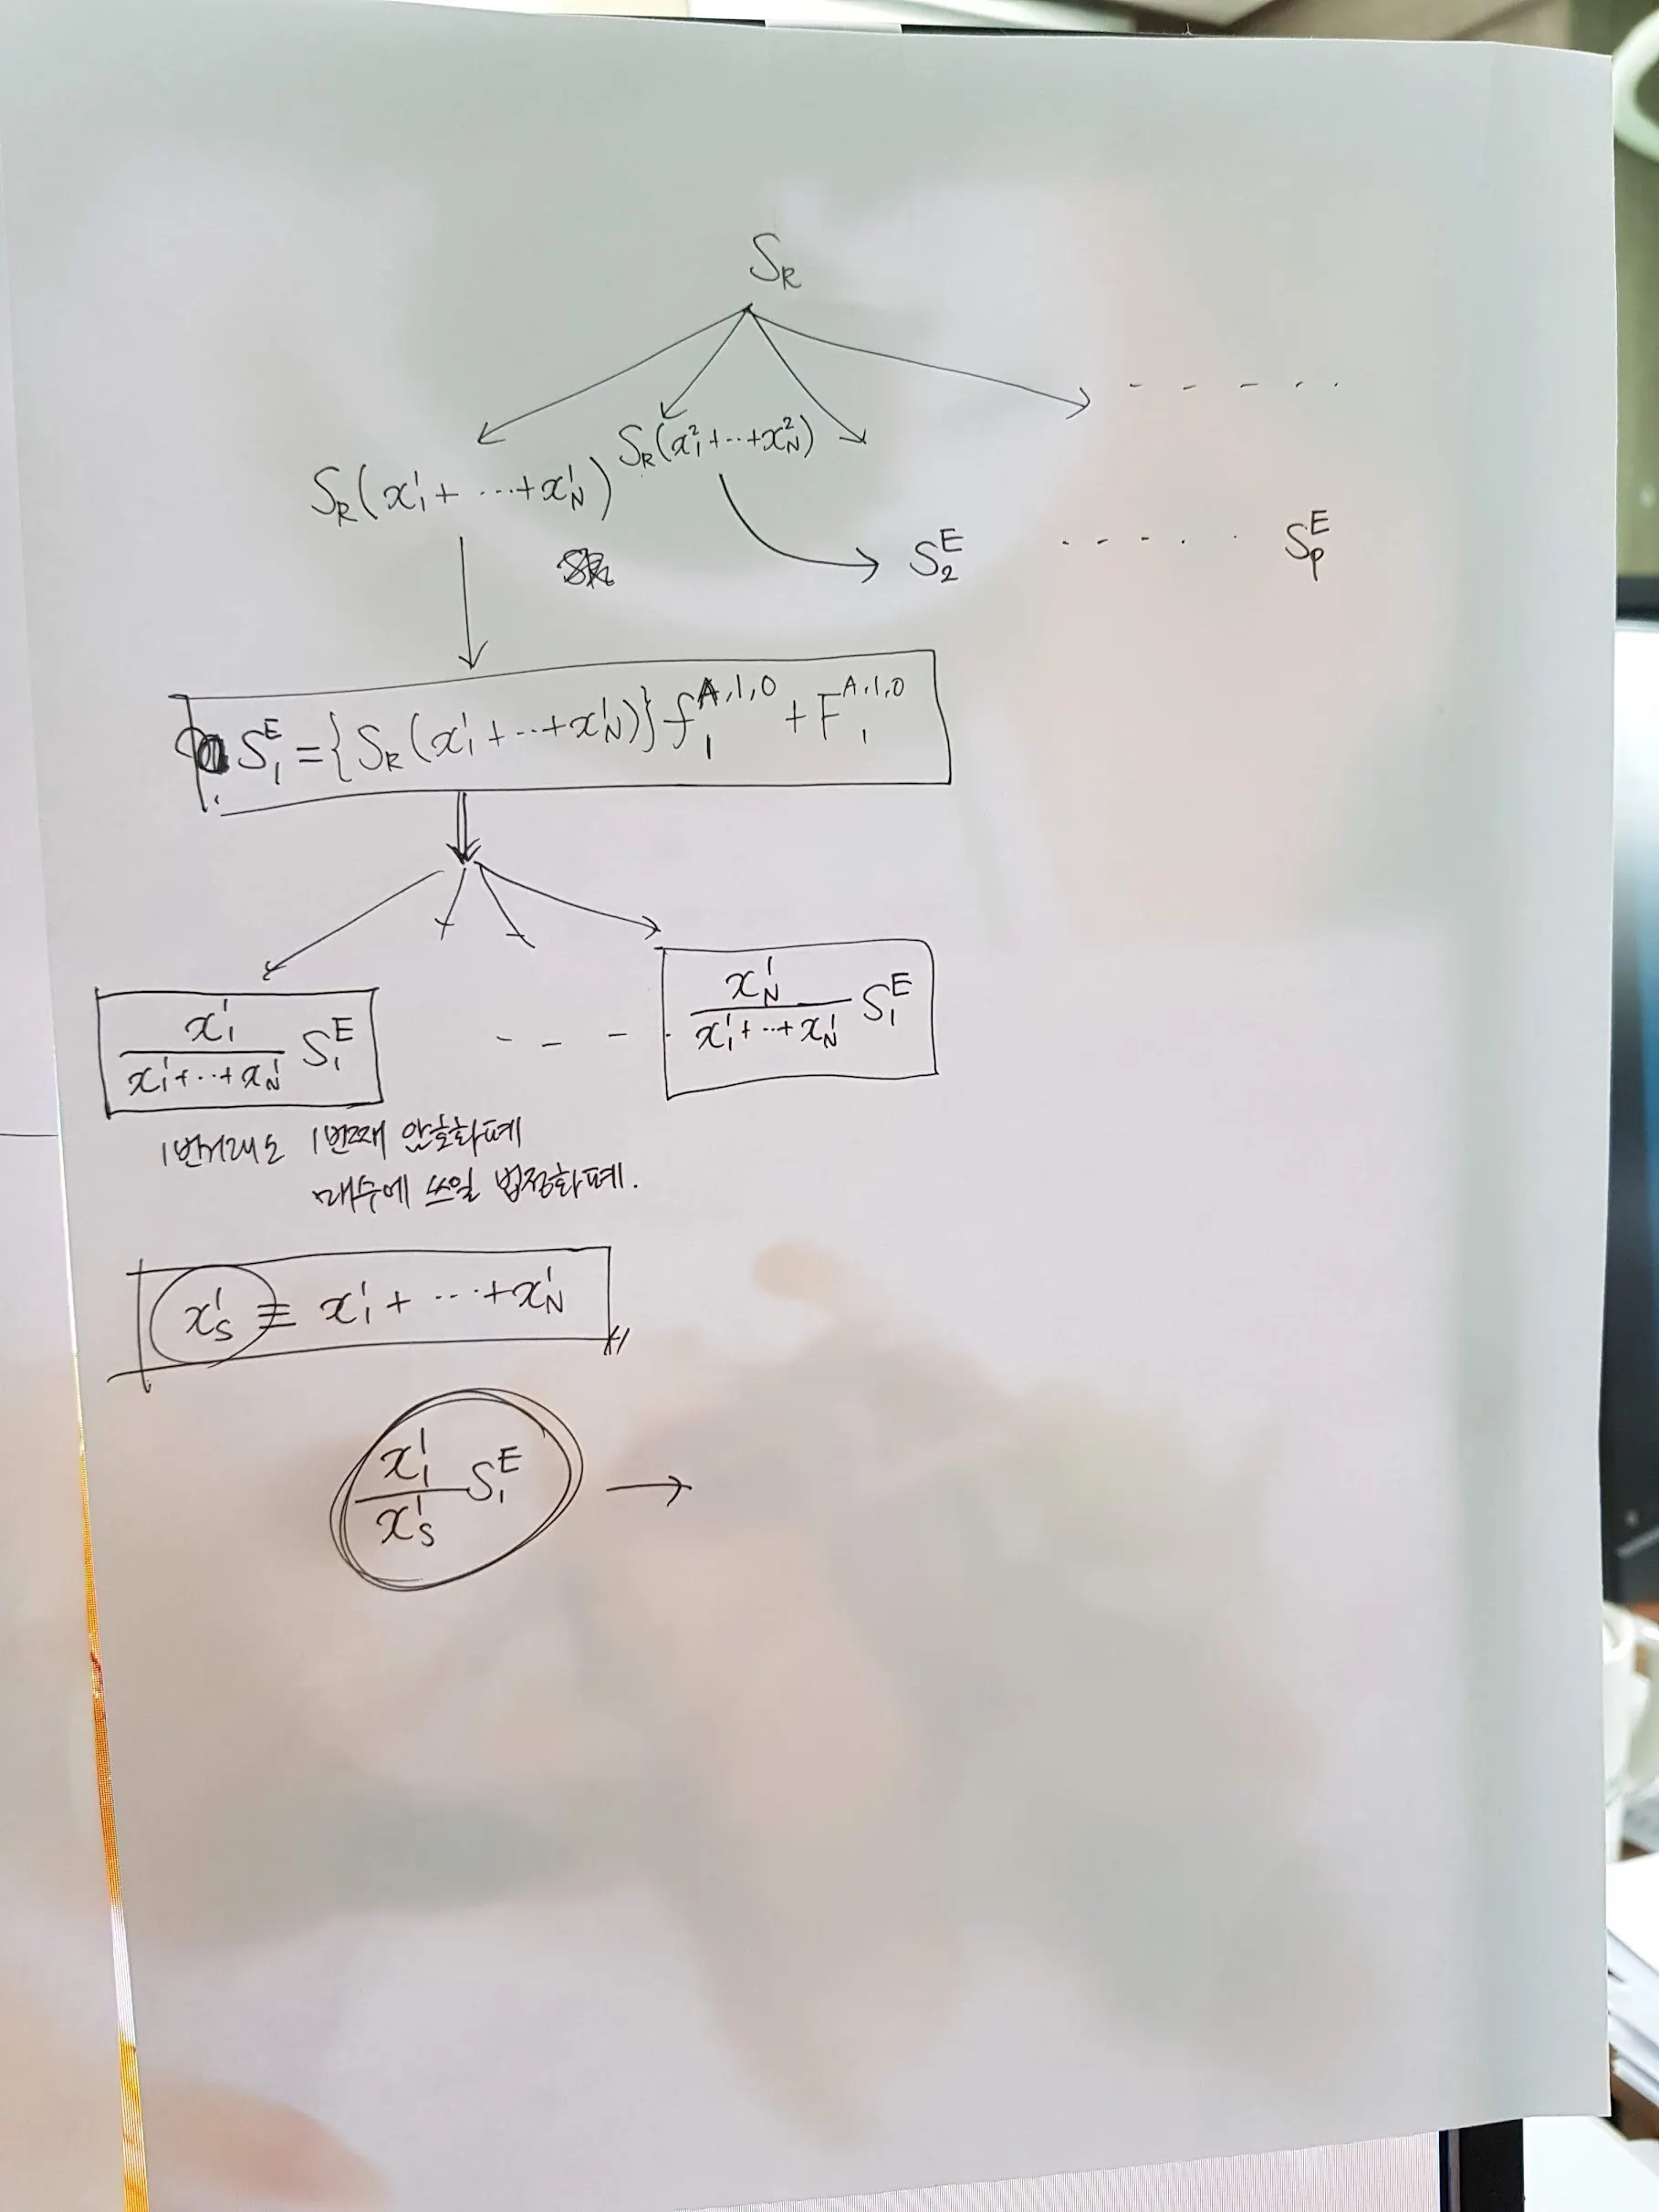 S_R
S_R(x_1^1 + ⋯ + x_N^1) S_R(x_1^2 + ⋯ + x_N^2)
S_2^E ⋯ S_p^E
S_1^E = {S_R(x_1^1 + ⋯ + x_N^1)} f_1^{A,1,0} + F_1^{A,1,0}
\frac{x_1^1}{x_1^1 + ⋯ + x_N^1} S_1^E - - - \frac{x_N^1}{x_1^1 + ⋯ + x_N^1} S_1^E
1번거래소 1번째 암호화폐
매수에 쓰일 법정화폐.
x_S^1 ≡ x_1^1 + ⋯ + x_N^1
\frac{x_1^1}{x_S^1} S_1^E →